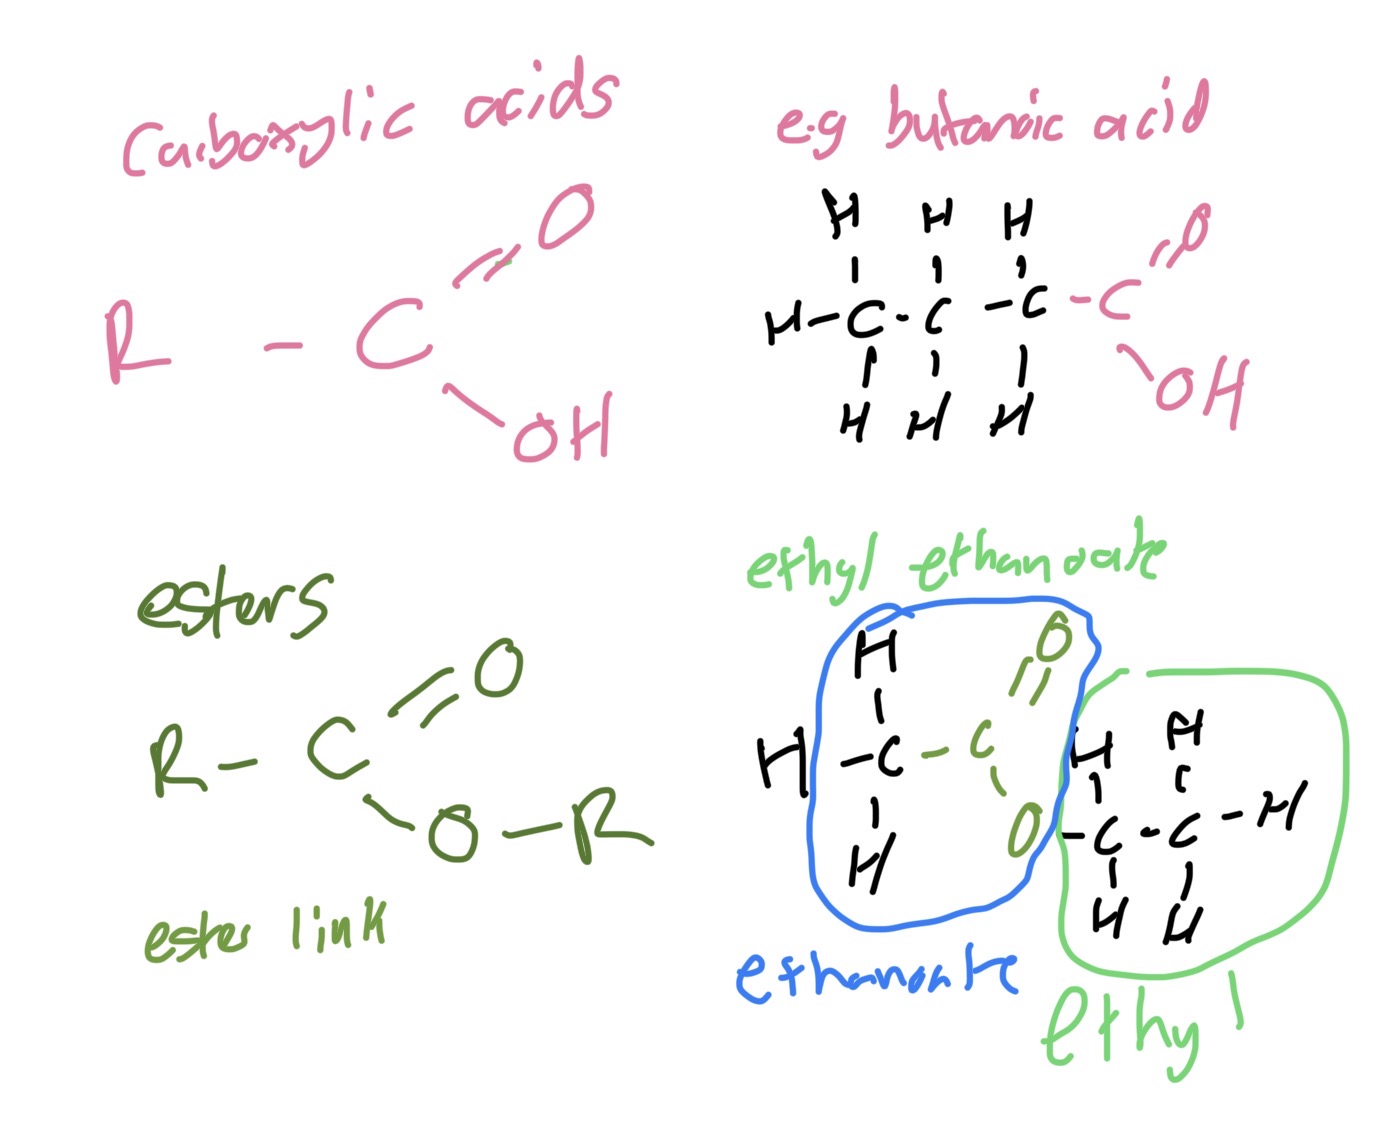 Carboxylic acids
R - C
O
OH
e.g butanoic acid
H H H
H - C - C - C - C
O
OH
H H H
esters
R - C
O
O - R
ester link
ethyl ethanoate
H O
H - C - C
H O
H H
- C - C - H
H H
ethanoate
ethyl